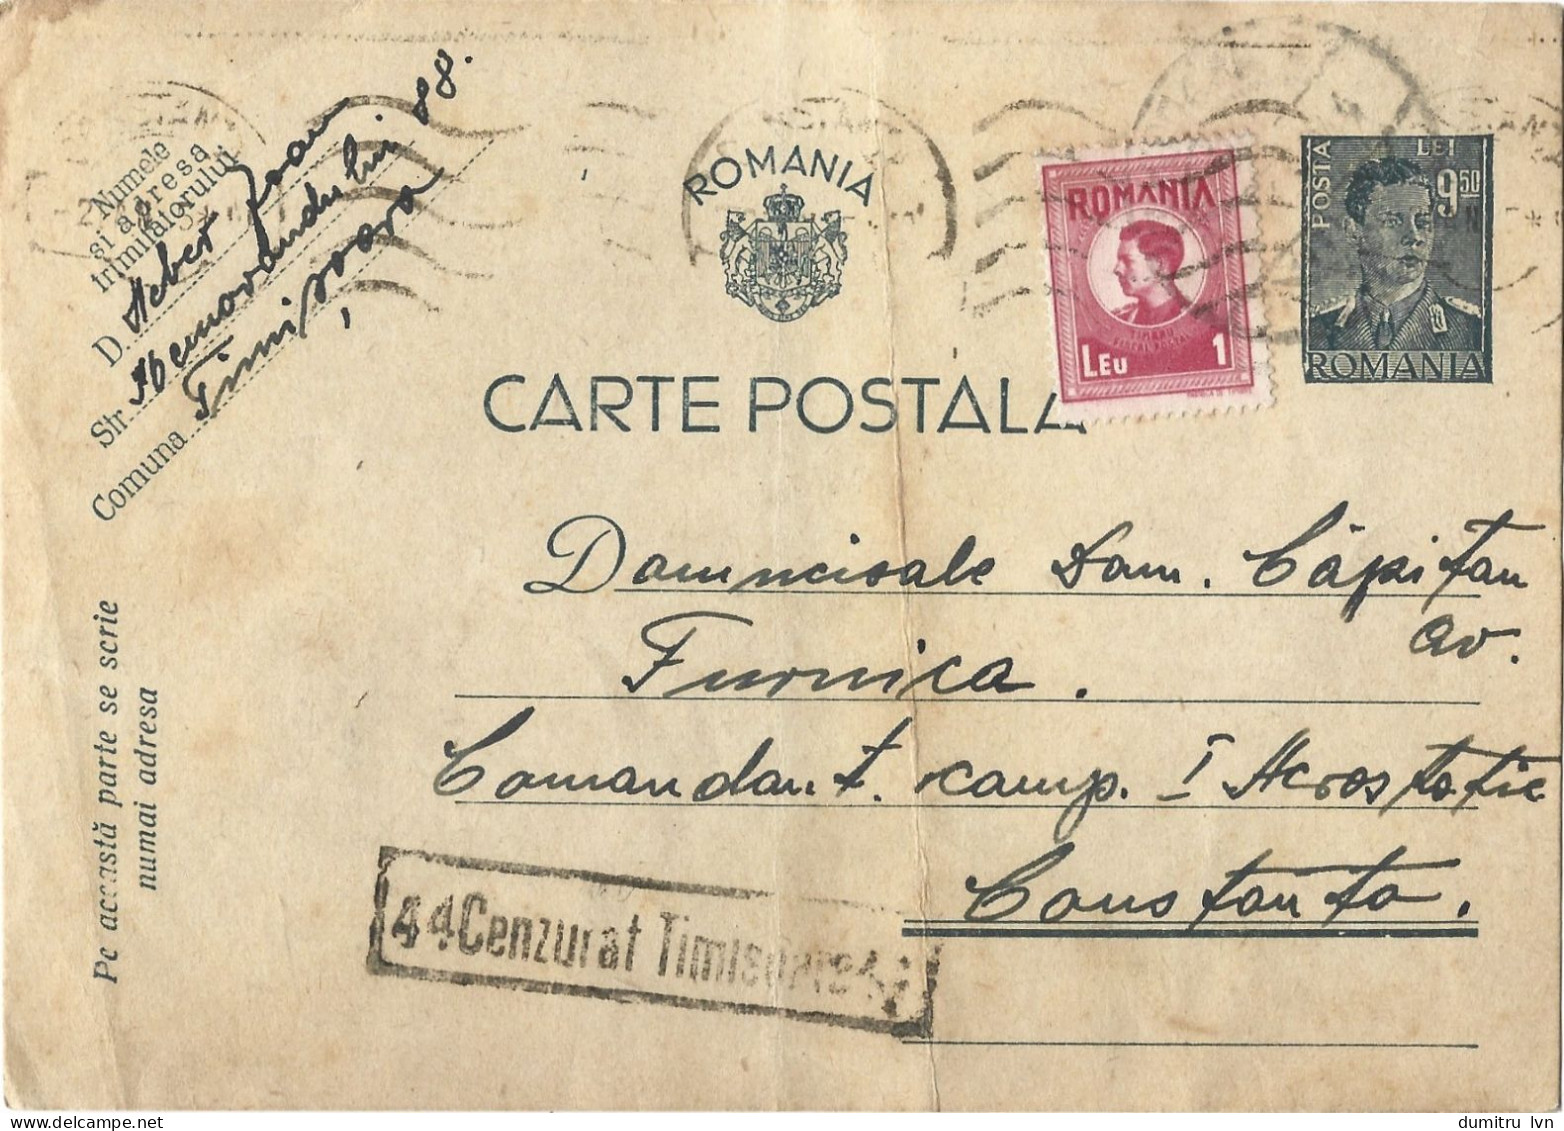 Numele
și adresa
trimițătorului
D. Heber Ioan
Str. Memorandului 88.
Comuna Timișoara
ROMANIA
ROMANIA
LEU 1
POSTA
LEI
9 50
ROMANIA
CARTE POSTALA
Domnisoale Dom. Căpitan
av.
Furnica.
Comandant. camp. I Aerostatie
Constanta.
44 Cenzurat Timisoara 44
Pe această parte se scrie
numai adresa
dumitru_lvn